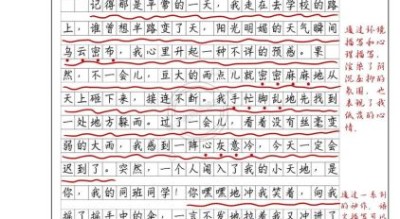 记得那是平常的一天，我走在去学校的路
上，谁曾想半路变了天，阳光明媚的天气瞬间
乌云密布，我心里升起一种不详的预感。果
然，不一会儿，豆大的雨点儿就密密麻麻地从
天上砸下来，接连不断。我手忙脚乱地先找到
一处地方躲雨。过了一会儿，看着没有丝毫变
弱的大雨，我感到一阵心灰意冷，今天一定会
迟到了。突然，一个人闯入了我的小天地，是
你，我的同班同学！你嘿嘿地冲我笑着，向我
摇了摇手中的伞，一言不发地拉着我又冲进了
通过环境
描写和心
理描写，
渲染了阴
沉压抑的
氛围，也
表现了我
低落的心
情。
通过一系列
的动作、语